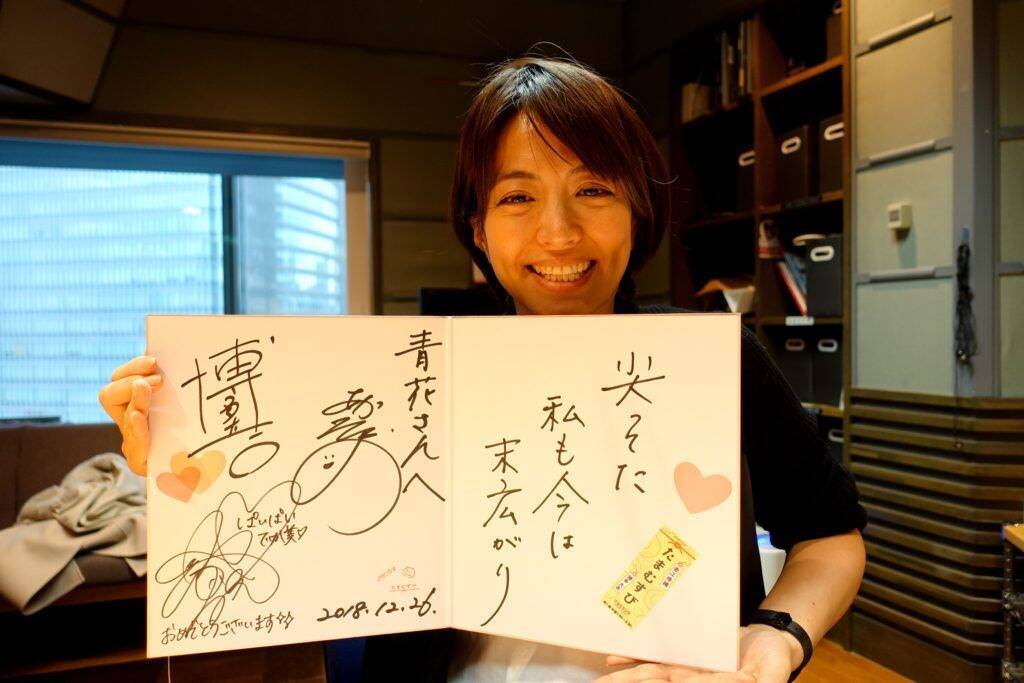 尖ってた
私も今は
末広がり
たまむすび
青花さんへ
ぱいぱい
でか美
おめでとうございます
2018.12.26.